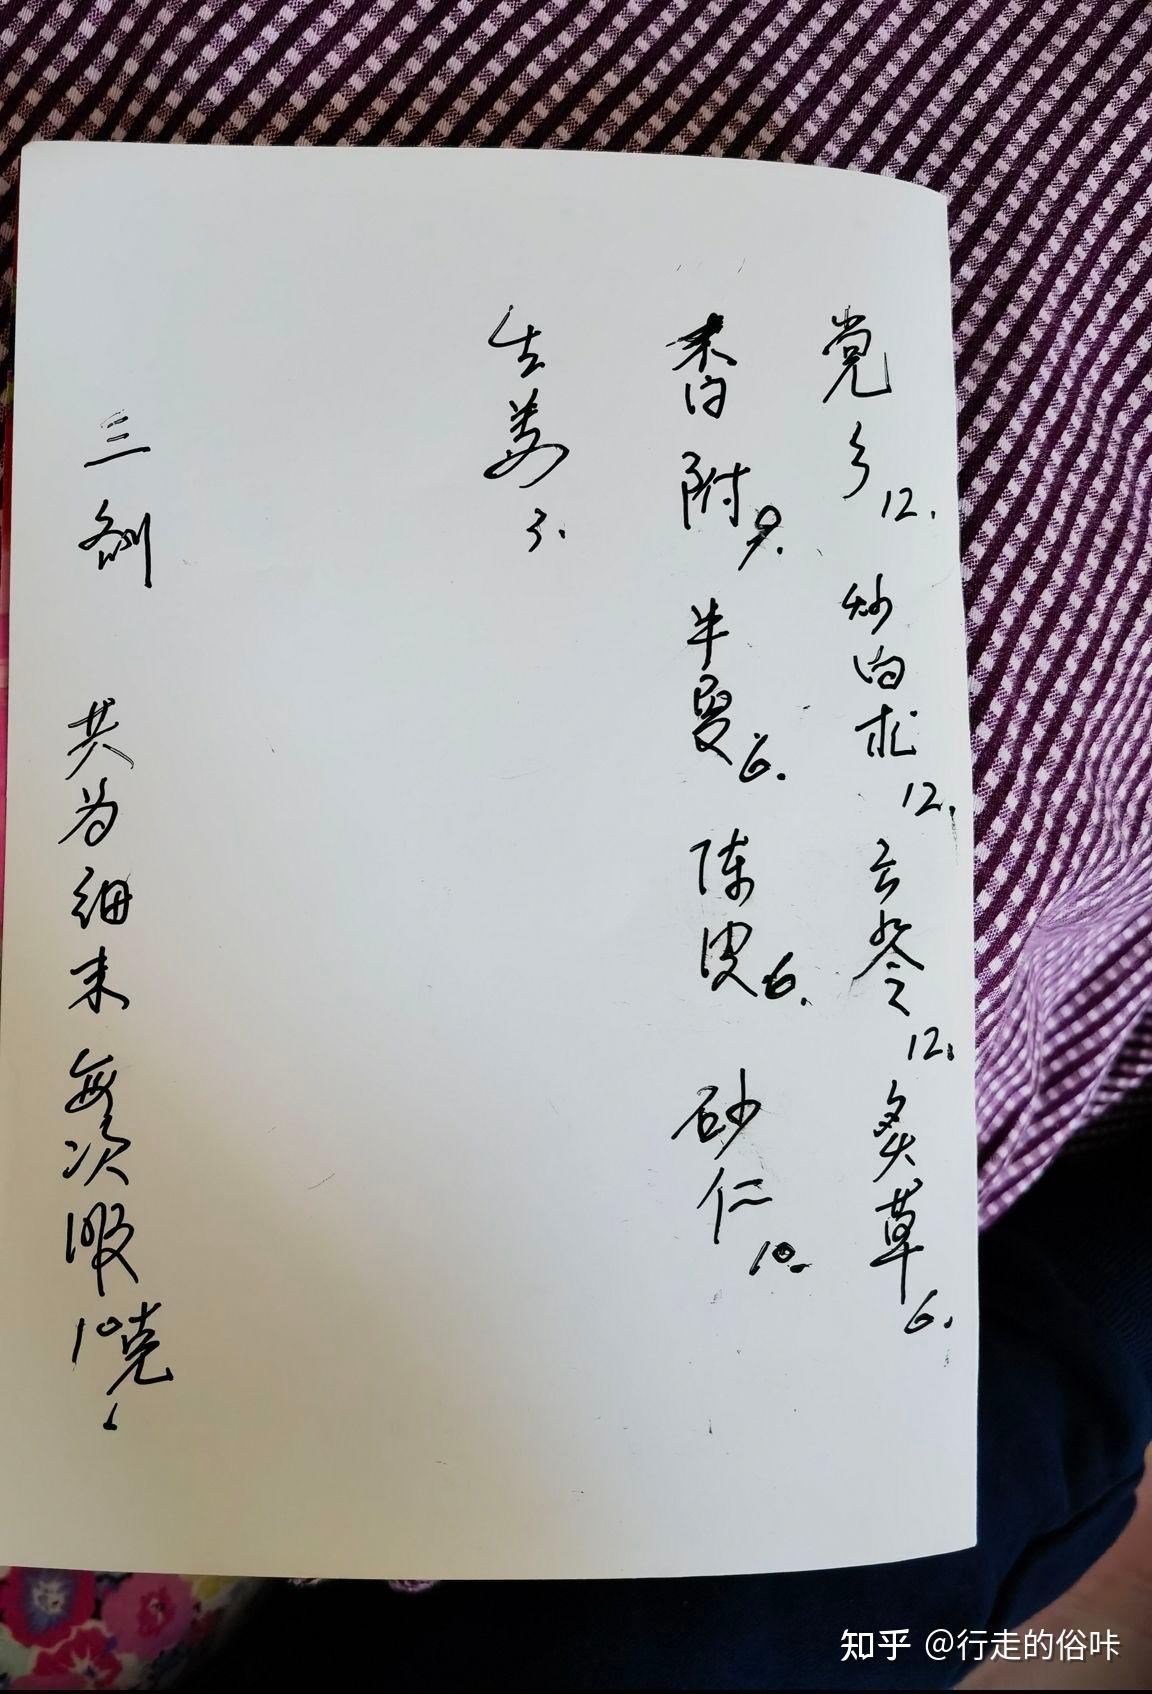 党参12. 炒白术12. 云苓12. 炙草6.
香附9. 半夏6. 陈皮6. 砂仁10.
生姜3.
三剂 共为细末 每次服10克
知乎 @行走的俗咔